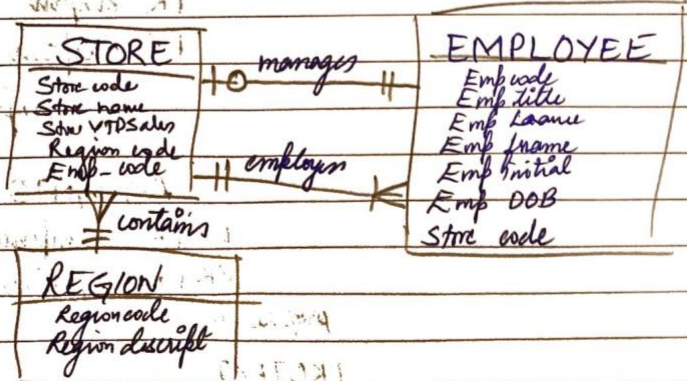 STORE
Store code
Store name
Store YTDSales
Region code
Emp_code
manages
employs
contains
EMPLOYEE
Emp code
Emp title
Emp Lname
Emp fname
Emp initial
Emp DOB
Store code
REGION
Region code
Region descript